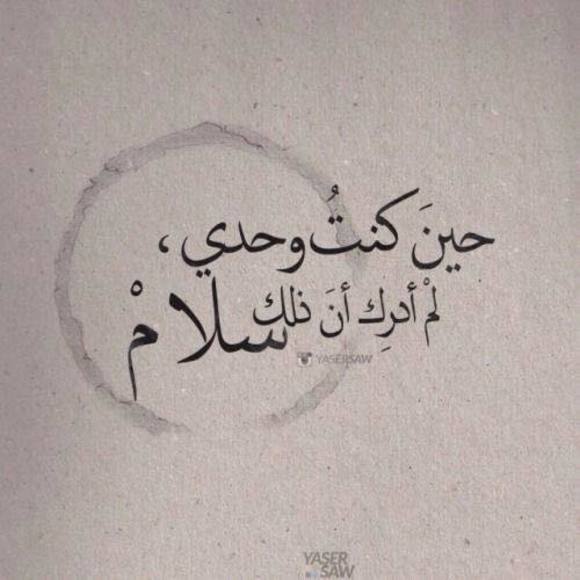 حينَ كنتُ وحدي ،
لمْ أدرِك أنَ ذلك سلامْ
YASERSAW
YASER
SAW